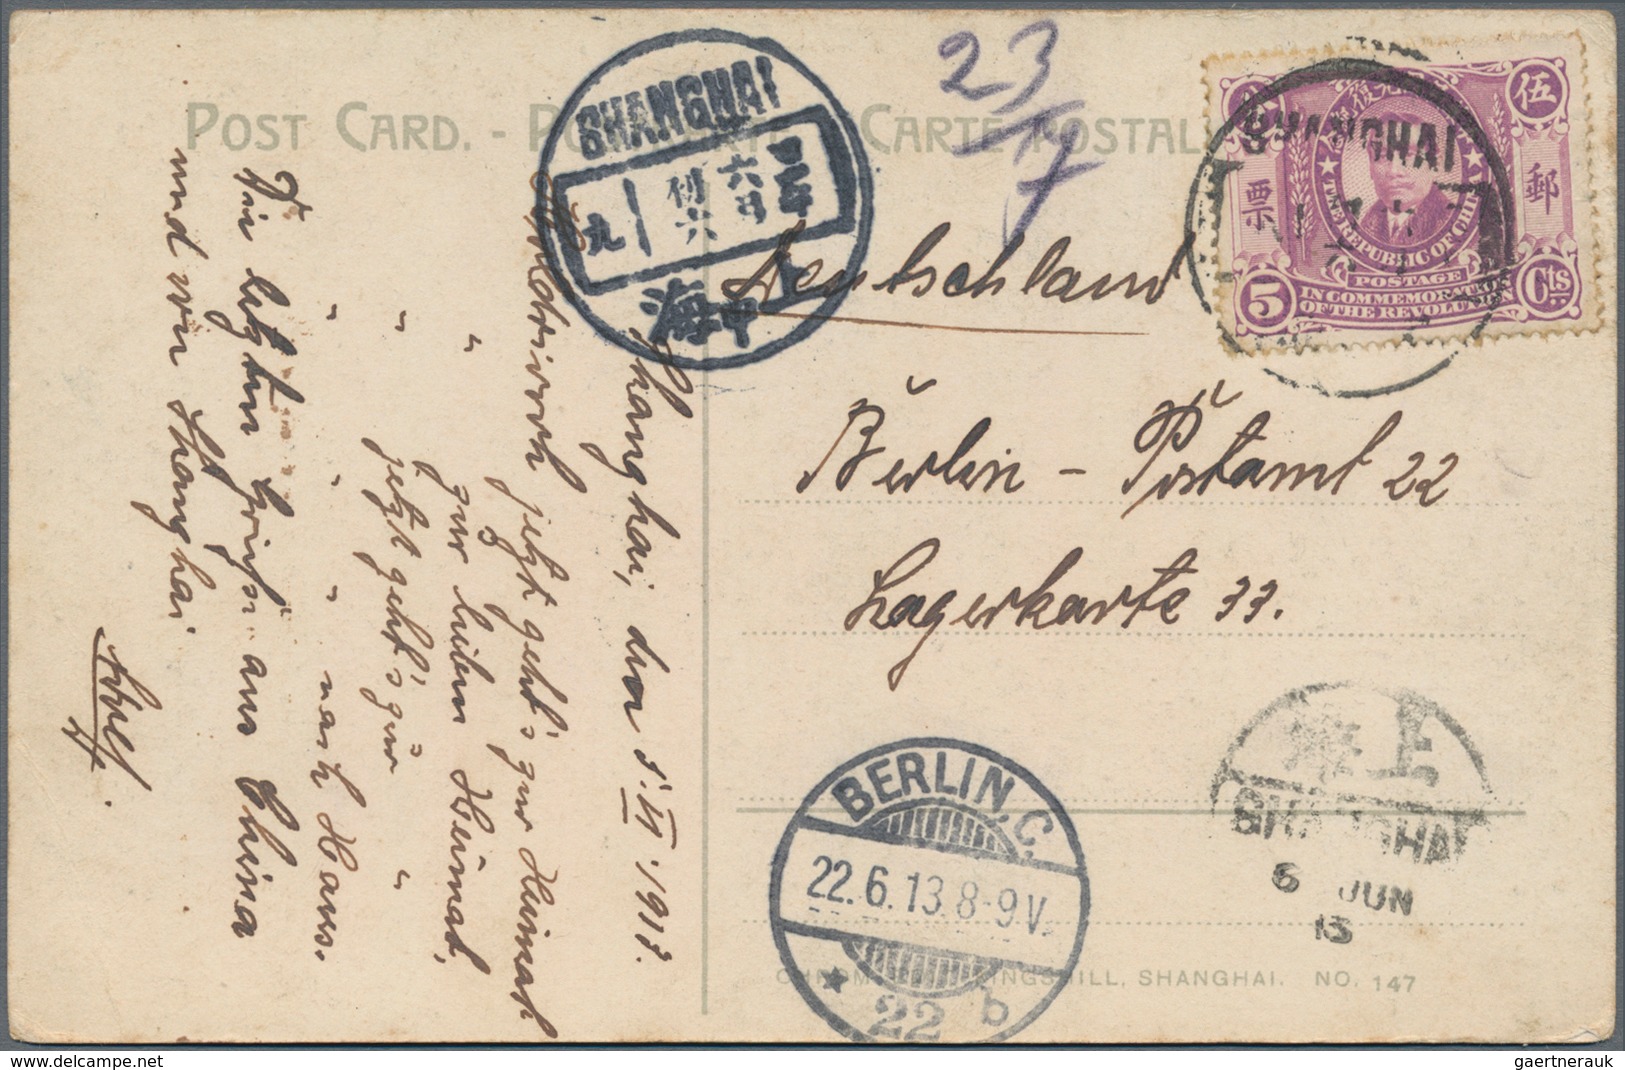 POST CARD. - CARTE POSTAL
23
Deutschland
Berlin - Postamt 22
Lagerkarte 33.
Shanghai, den 5. VI. 1913.
jetzt geht's zur Heimat
zur lieben Heimat,
jetzt geht's zur "
" " " nach Haus.
Die letzten Grüße aus China
und von Shanghai
SHANGHAI
四
六月
六
九
海
中
伍
郵
票
SHANGHAI
THE REPUBLIC OF CHINA
POSTAGE
IN COMMEMORATION
OF THE REVOLUTION
5 Cts
BERLIN, C.
22.6.13.8-9V.
* 22 b
上海
SHANGHAI
6 JUN
13
HILL, SHANGHAI. NO. 147
www.delcampe.net
gaertnerauk